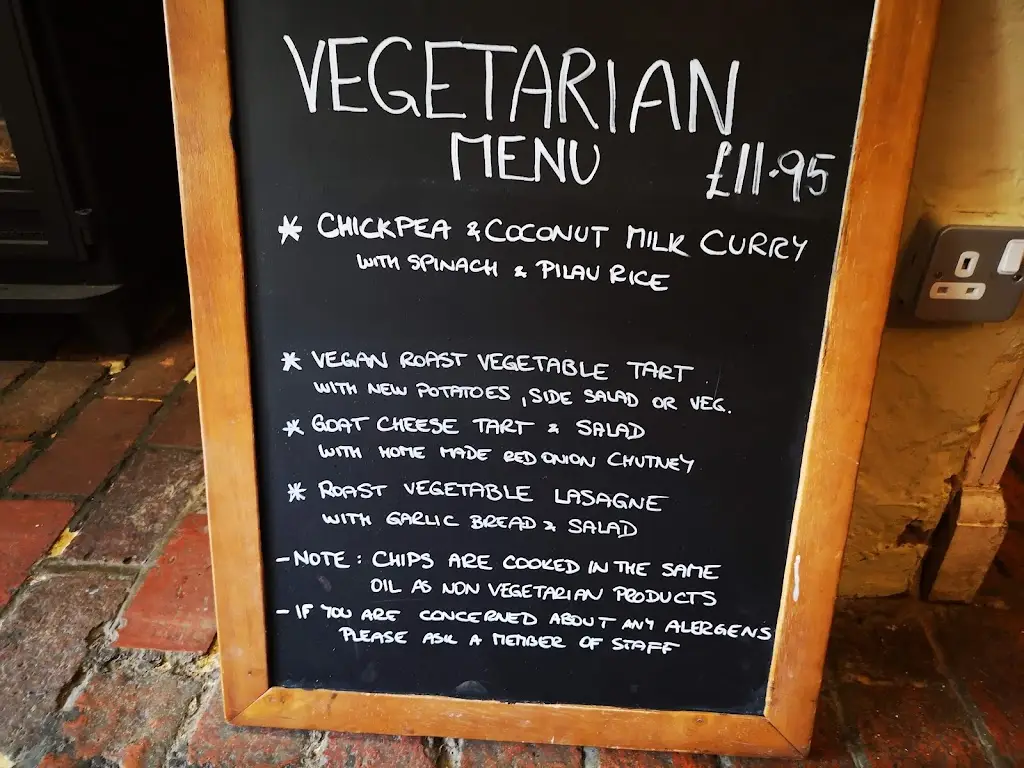 VEGETARIAN
MENU £11.95
* CHICKPEA & COCONUT MILK CURRY
WITH SPINACH & PILAU RICE
* VEGAN ROAST VEGETABLE TART
WITH NEW POTATOES, SIDE SALAD OR VEG.
* GOAT CHEESE TART & SALAD
WITH HOME MADE RED ONION CHUTNEY
* ROAST VEGETABLE LASAGNE
WITH GARLIC BREAD & SALAD
- NOTE: CHIPS ARE COOKED IN THE SAME
OIL AS NON VEGETARIAN PRODUCTS
- IF YOU ARE CONCERNED ABOUT ANY ALERGENS
PLEASE ASK A MEMBER OF STAFF